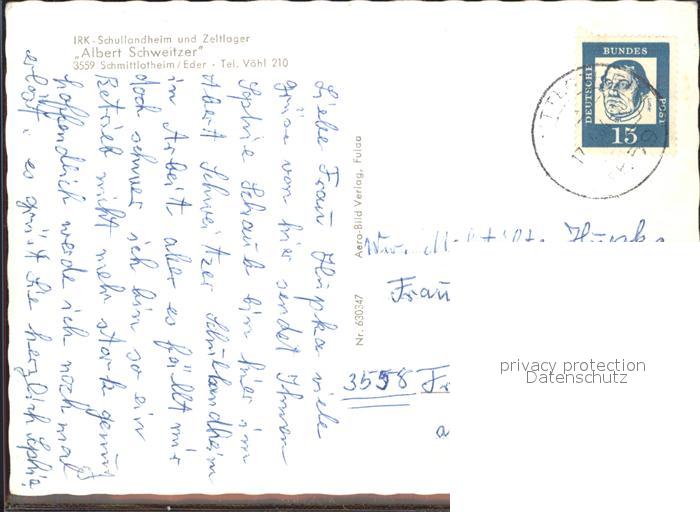 IRK - Schullandheim und Zeltlager
„Albert Schweitzer"
3559 Schmittlotheim/Eder · Tel. Vöhl 210
Liebe Frau Hupka viele
grüse von hier sendet Ihnen
Sophie Schaub bin hier im
Albert Schweitzer Schullandheim
in Arbeit aber es fällt mir
doch schwer ich bin so ein
Betrieb nicht mehr stark genug
hoffendlich werde ich noch mal
erlöst. es grüst Sie herzlich Sophie
Nr. 630347 Aero-Bild Verlag, Fulda
DEUTSCHE
BUNDES
POST
15
Hupka
Frau
3558 Fr
privacy protection
Datenschutz